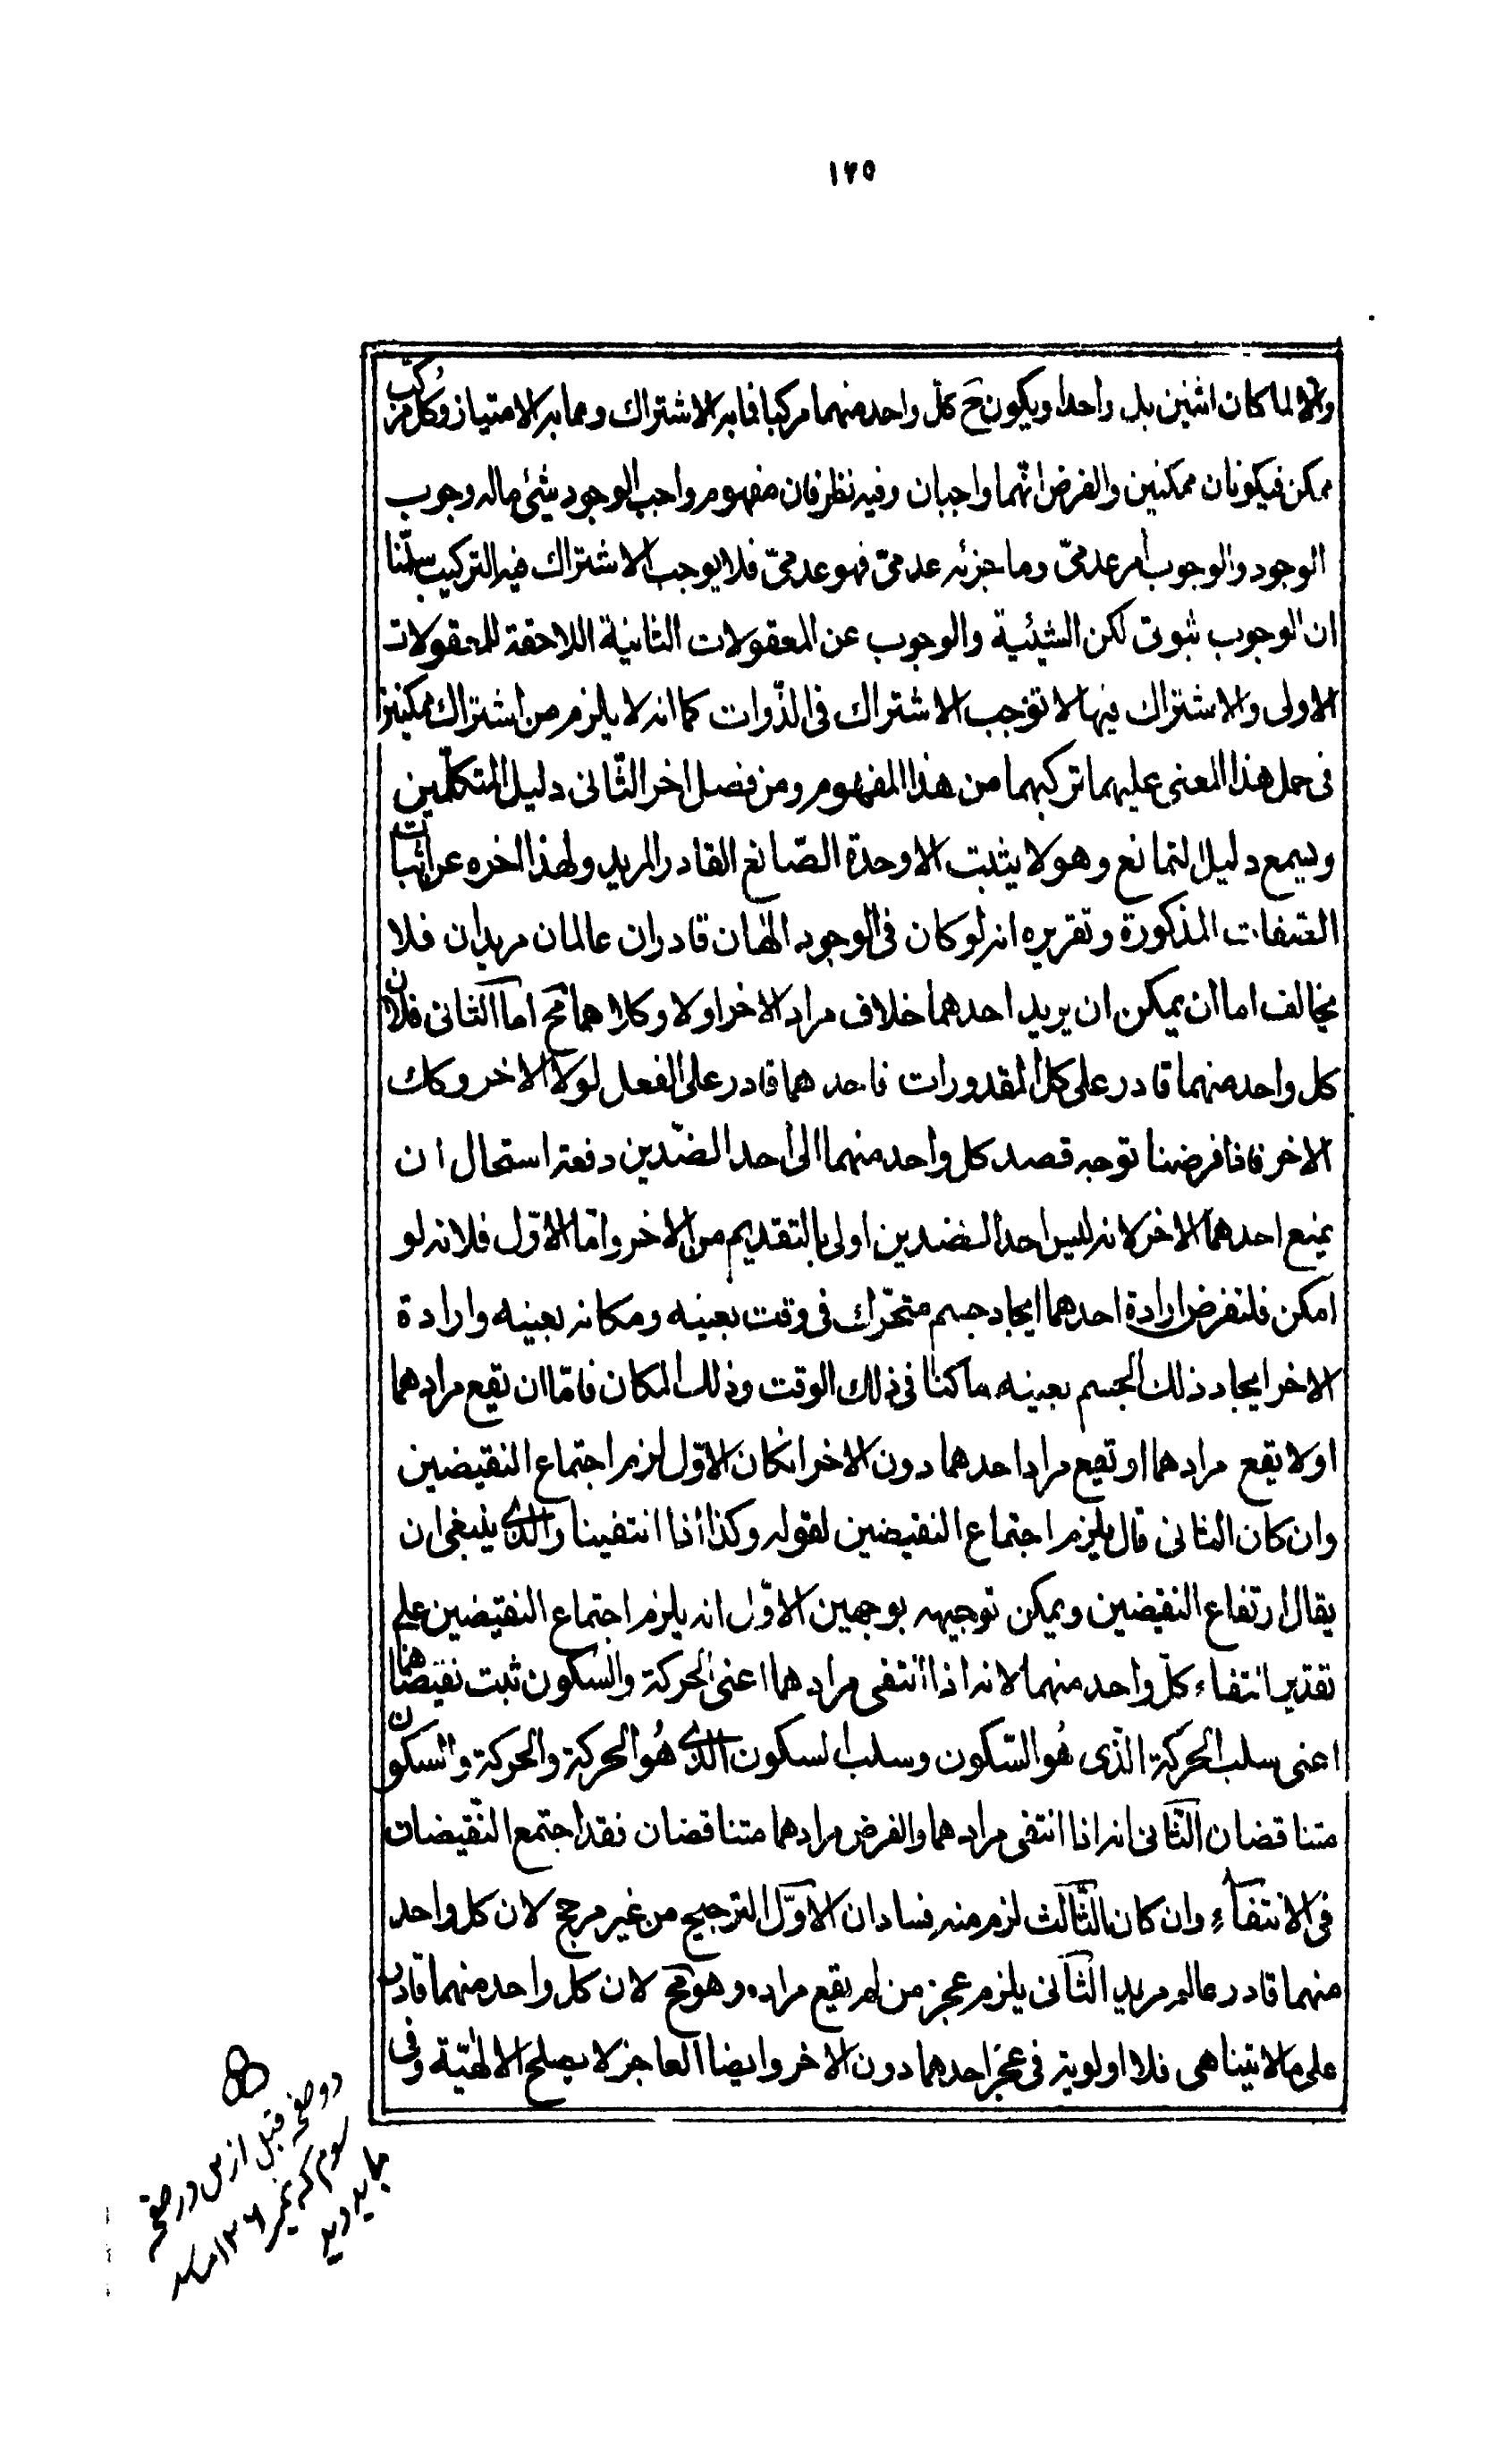 ١٢٥
والا لما كان اثنين بل واحدا ويكون ح كل واحد منهما مركبا مما به الاشتراك ومما به الامتياز وكل مركب
ممكن فيكونان ممكنين والفرض انهما واجبان وفيه نظر فان مفهوم واجب الوجود شئ ماله وجوب
الوجود والوجوب امر عدمىّ وما جزئه عدمىّ فهو عدمىّ فلا يوجب الاشتراك فيه التركيب سلّمنا
ان الوجوب ثبوتى لكن الشيئية والوجوب عن المعقولات الثانية اللاحقة للمعقولات
الاولى والاشتراك فيها لا توجب الاشتراك فى الذّوات كما انه لا يلزم من اشتراك ممكنين
فى حمل هذا المعنى عليهما تركبهما من هذا المفهوم ومن فصل اخر الثّانى دليل المتكلّمين
ويسمع دليل التمانع وهو لا يثبت الا وحدة الصّانع القادر المريد ولهذا اخره عن اثبات
الصفات المذكورة وتقريره انه لو كان فى الوجود الهان قادران عالمان مريدان فلا
يخالف اما ان يمكن ان يريد احدهما خلاف مراد الاخر او لا وكلاهما مح اما الثانى فلان
كل واحد منهما قادر على كل المقدورات فاحدهما قادر على الفعل لولا الاخر وكك
الاخر فاذا فرضنا توجه قصد كل واحد منهما الى احد الضّدين دفعة استحال ان
يمنع احدهما الاخر لانه ليس احد الضدين اولى بالتقديم من الاخر وامّا الاوّل فلانه لو
امكن فلنفرض ارادة احدهما ايجاد جسم متحرّك فى وقت بعينه ومكانه بعينه وارادة
الاخر ايجاد ذلك الجسم بعينه ساكنا فى ذلك الوقت وذلك المكان فامّا ان يقع مرادهما
او لا يقع مرادهما او تقع مراد احدهما دون الاخر انكان الاوّل لزم اجتماع النقيضين
وان كان الثانى قال يلزم اجتماع النقيضين لقوله وكذا اذا انتفينا والذى ينبغى ان
يقال ارتفاع النقيضين ويمكن توجيهه بوجهين الاوّل انه يلزم اجتماع النقيضين على
تقدير انتفاء كلّ واحد منهما لانه اذا انتفى مرادهما اعنى الحركة والسّكون ثبت نقيضاهما
اعنى سلب الحركة الذى هُو السّكون وسلب السكون الذى هُو الحركة والحركة والسكون
متناقضان الثّانى انه اذا انتفى مرادهما والفرض مرادهما متناقضان فقد اجتمع النّقيضان
فى الانتفاء وان كان الثّالث لزم منه فسادان الاوّل الترجيح من غير مرجح لان كل واحد
منهما قادر عالم مريد الثّانى يلزم عجز من لم يقع مراده وهو مح لان كل واحد منهما قادر
على ما لا يتناهى فلا اولوية فى عجز احدهما دون الاخر وايضا العاجز لا يصلح الالهيّة وفى
دو صفحه قبل از اين در صفحه
سوم كه نمره ١٢٦
بايد ديد